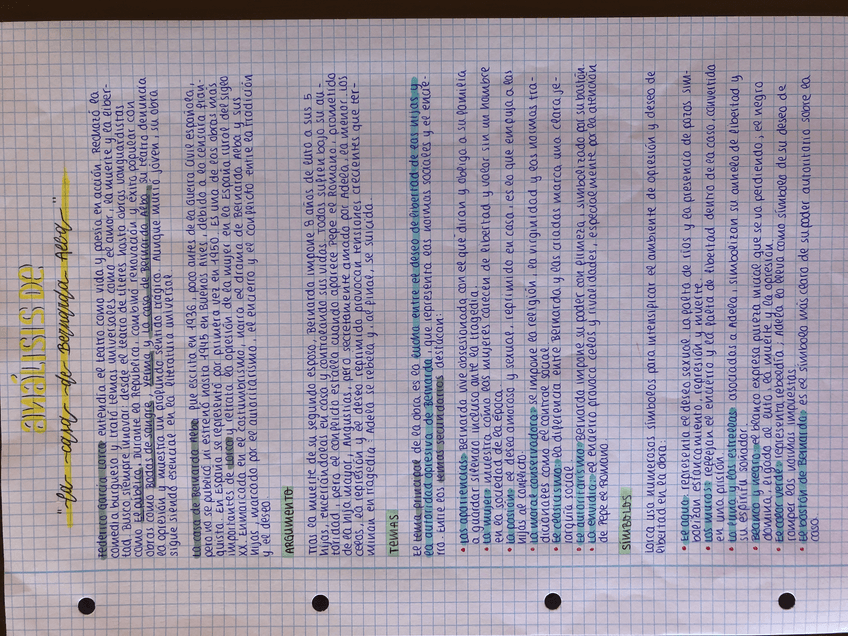 ANÁLISIS DE:
"La casa de Bernarda Alba"
Federico García Lorca entendía el teatro como vida y poesía en acción. Rechazó la
comedia burguesa y trató temas universales como el amor, la muerte y la liber-
tad. Buscó siempre innovar, desde el teatro de títeres hasta obras vanguardistas
como El público. Durante la República, combinó renovación y éxito popular con
obras como Bodas de sangre, Yerma y La casa de Bernarda Alba. Su teatro denuncia
la opresión y muestra un profundo sentido trágico. Aunque murió joven, su obra
sigue siendo esencial en la literatura universal.
La casa de Bernarda Alba fue escrita en 1936, poco antes de la Guerra Civil española,
pero no se publicó ni estrenó hasta 1945 en Buenos Aires, debido a la censura fran-
quista. En España se representó por primera vez en 1950. Es una de las obras más
importantes de Lorca y retrata la opresión de la mujer en la España rural del siglo
XX. Enmarcada en el costumbrismo, narra el drama de Bernarda Alba y sus
hijas, marcado por el autoritarismo, el encierro y el conflicto entre la tradición
y el deseo.
ARGUMENTO
Tras la muerte de su segundo esposo, Bernarda impone 8 años de luto a sus 5
hijas, encerrándolas en casa y controlando sus vidas. Todas sufren bajo su au-
toridad, pero el conflicto estalla cuando aparece Pepe el Romano, prometido
de la hija mayor, Angustias, pero secretamente amado por Adela, la menor. Los
celos, la represión y el deseo reprimido provocan tensiones crecientes que ter-
minan en tragedia: Adela se rebela y, al final, se suicida.
TEMAS
El tema principal de la obra es la lucha entre el deseo de libertad de las hijas y
la autoridad opresiva de Bernarda, que representa las normas sociales y el encie-
rro. Entre los temas secundarios destacan:
• Las apariencias: Bernarda vive obsesionada con el qué dirán y obliga a su familia
a guardar silencio incluso ante la tragedia.
• La mujer: muestra cómo las mujeres carecen de libertad y valor sin un hombre
en la sociedad de la época.
• La pasión: el deseo amoroso y sexual, reprimido en casa, es lo que empuja a las
hijas al conflicto.
• La moral conservadora: se impone la religión, la virginidad y las normas tra-
dicionales como el control social.
• El clasismo: la diferencia entre Bernarda y las criadas marca una clara je-
rarquía social.
• El autoritarismo: Bernarda impone su poder con firmeza, simbolizado por su bastón.
• La envidia: el encierro provoca celos y rivalidades, especialmente por la atención
de Pepe el Romano.
SÍMBOLOS
Lorca usa numerosos símbolos para intensificar el ambiente de opresión y deseo de
libertad en la obra:
• El agua: representa el deseo sexual. La falta de ríos y la presencia de pozos sim-
bolizan estancamiento, represión y muerte.
• Los muros: reflejan el encierro y la falta de libertad dentro de la casa, convertida
en una prisión.
• La luna y las estrellas: asociadas a Adela, simbolizan su anhelo de libertad y
su espíritu soñador.
• Blanco y negro: el blanco expresa pureza inicial que se va perdiendo; el negro
domina, ligado al luto, la muerte y la opresión.
• El color verde: representa rebeldía; Adela lo lleva como símbolo de su deseo de
romper las normas impuestas.
• El bastón de Bernarda: es el símbolo más claro de su poder autoritario sobre la
casa.